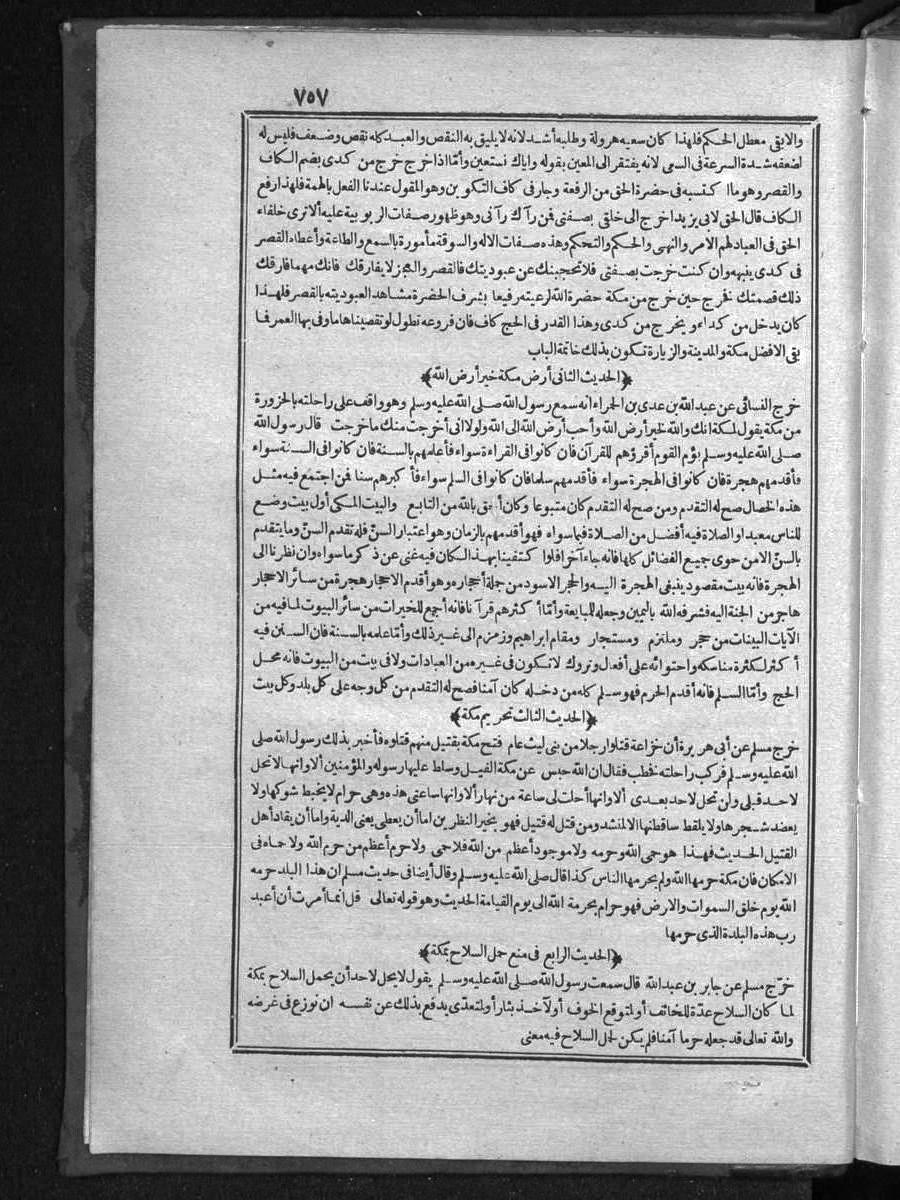 ٧٥٧
والابقى معطل الحكم فلهذا كان سعيه هرولة وطلبه أشد لانه لا يليق به النقص والعبد كله نقص وضعف فليس له
لضعفه شدة السرعة فى السعى لانه يفتقر الى المعين بقوله واياك نستعين وأما اذا خرج خرج من كدى بضم الكاف
والقصر وهو ما اكتسبه فى حضرة الحق من الرفعة وجار فى كاف التكوين وهو المقول عندنا الفعل بالهمة فلهذا رفع
الكاف قال الحق لابى يزيد اخرج الى خلقى بصفتى فمن رآك رآنى وهو ظهور صفات الربوبية عليه ألا ترى خلفاء
الحق فى العباد لهم الامر والنهى والحكم والتحكم وهذه صفات الاله والسوقة مأمورة بالسمع والطاعة وأعطاه القصر
فى كدى ينبهه وان كنت خرجت بصفتى فلا تحجبنك عن عبوديتك فالقصر والعجز لا يفارقك فانك مهما فارقك
ذلك قصمتك فخرج حين خرج من مكة حضرة الله لرعيته رفيعا بشرف الحضرة مشاهد العبوديته بالقصر فلهذا
كان يدخل من كداء ويخرج من كدى وهذا القدر فى الحج كاف فان فروعه تطول لو تقصيناها ما وفى بها العمر فما
بقى الافضل مكة والمدينة والزيارة تكون بذلك خاتمة الباب
﴿الحديث الثانى أرض مكة خير أرض الله﴾
خرج النسائى عن عبد الله بن عدى بن الحمراء انه سمع رسول الله صلى الله عليه وسلم وهو واقف على راحلته بالحزورة
من مكة يقول لمكة انك والله لخير أرض الله وأحب أرض الله الى الله ولولا انى أخرجت منك ما خرجت قال رسول الله
صلى الله عليه وسلم يؤم القوم أقرؤهم للقرآن فان كانوا فى القراءة سواء فأعلمهم بالسنة فان كانوا فى السنة سواء
فأقدمهم هجرة فان كانوا فى الهجرة سواء فأقدمهم سلما فان كانوا فى السلم سواء فأكبرهم سنا فمن اجتمع فيه مثل
هذه الخصال صح له التقدم ومن صح له التقدم كان متبوعا وكان أحق بالله من التابع والبيت المكى أول بيت وضع
للناس معبدا والصلاة فيه أفضل من الصلاة فيما سواه فهو أقدمهم بالزمان وهو اعتبار السن فله تقدم السن وما يتقدم
بالسن الا من حوى جميع الفضائل كلها فانه جاء آخرا فلو اكتفينا بهذا لكان فيه غنى عن ذكر ما سواه وان نظرنا الى
الهجرة فانه بيت مقصود ينبغى الهجرة اليه والحجر الاسود من جملة أحجاره وهو أقدم الاحجار هجرة من سائر الاحجار
هاجر من الجنة اليه فشرفه الله باليمين وجعله للمبايعة وأما أكثرهم قرآنا فانه أجمع للخيرات من سائر البيوت لما فيه من
الآيات البينات من حجر وملتزم ومستجار ومقام ابراهيم وزمزم الى غير ذلك وأما علمه بالسنة فان السنن فيه
أكثر لكثرة مناسكه واحتوائه على أفعال وتروك لا تكون فى غيره من العبادات ولا فى بيت من البيوت فانه محل
الحج وأما السلم فانه أقدم الحرم فهو سلم كله من دخله كان آمنا فصح له التقدم من كل وجه على كل بلد وكل بيت
﴿الحديث الثالث تحريم مكة﴾
خرج مسلم عن أبى هريرة أن خزاعة قتلوا رجلا من بنى ليث عام فتح مكة بقتيل منهم قتلوه فأخبر بذلك رسول الله صلى
الله عليه وسلم فركب راحلته فخطب فقال ان الله حبس عن مكة الفيل وسلط عليها رسوله والمؤمنين ألا وانها لا تحل
لاحد قبلى ولن تحل لاحد بعدى ألا وانها أحلت لى ساعة من نهار ألا وانها ساعتى هذه وهى حرام لا يخبط شوكها ولا
يعضد شجرها ولا يلقط ساقطتها الا لمنشد ومن قتل له قتيل فهو بخير النظرين اما أن يعطى يعنى الدية واما أن يقاد أهل
القتيل الحديث فهذا هو حمى الله وحرمه ولا موجود أعظم من الله فلا حمى ولا حرم أعظم من حرم الله ولا حماه فى
الامكان فان مكة حرمها الله ولم يحرمها الناس كذا قال صلى الله عليه وسلم وقال أيضا فى حديث مسلم ان هذا البلد حرمه
الله يوم خلق السموات والارض فهو حرام بحرمة الله الى يوم القيامة الحديث وهو قوله تعالى قل انما أمرت أن أعبد
رب هذه البلدة الذى حرمها
﴿الحديث الرابع فى منع حمل السلاح بمكة﴾
خرّج مسلم عن جابر بن عبد الله قال سمعت رسول الله صلى الله عليه وسلم يقول لا يحل لاحد أن يحمل السلاح بمكة
لما كان السلاح عدّة للخائف أو لتوقع الخوف أو لآخذ بثار أو لتعدّى يدفع بذلك عن نفسه ان نوزع فى غرضه
والله تعالى قد جعله حرما آمنا فلم يكن لحمل السلاح فيه معنى